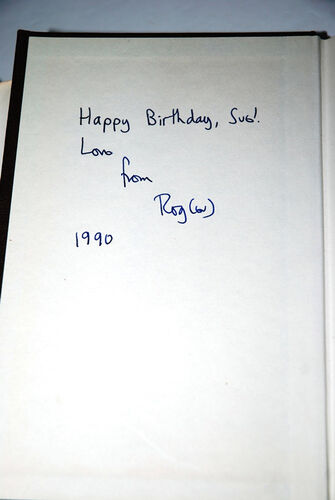 Happy Birthday, Sue!
Love
from
Rog(er)
1990